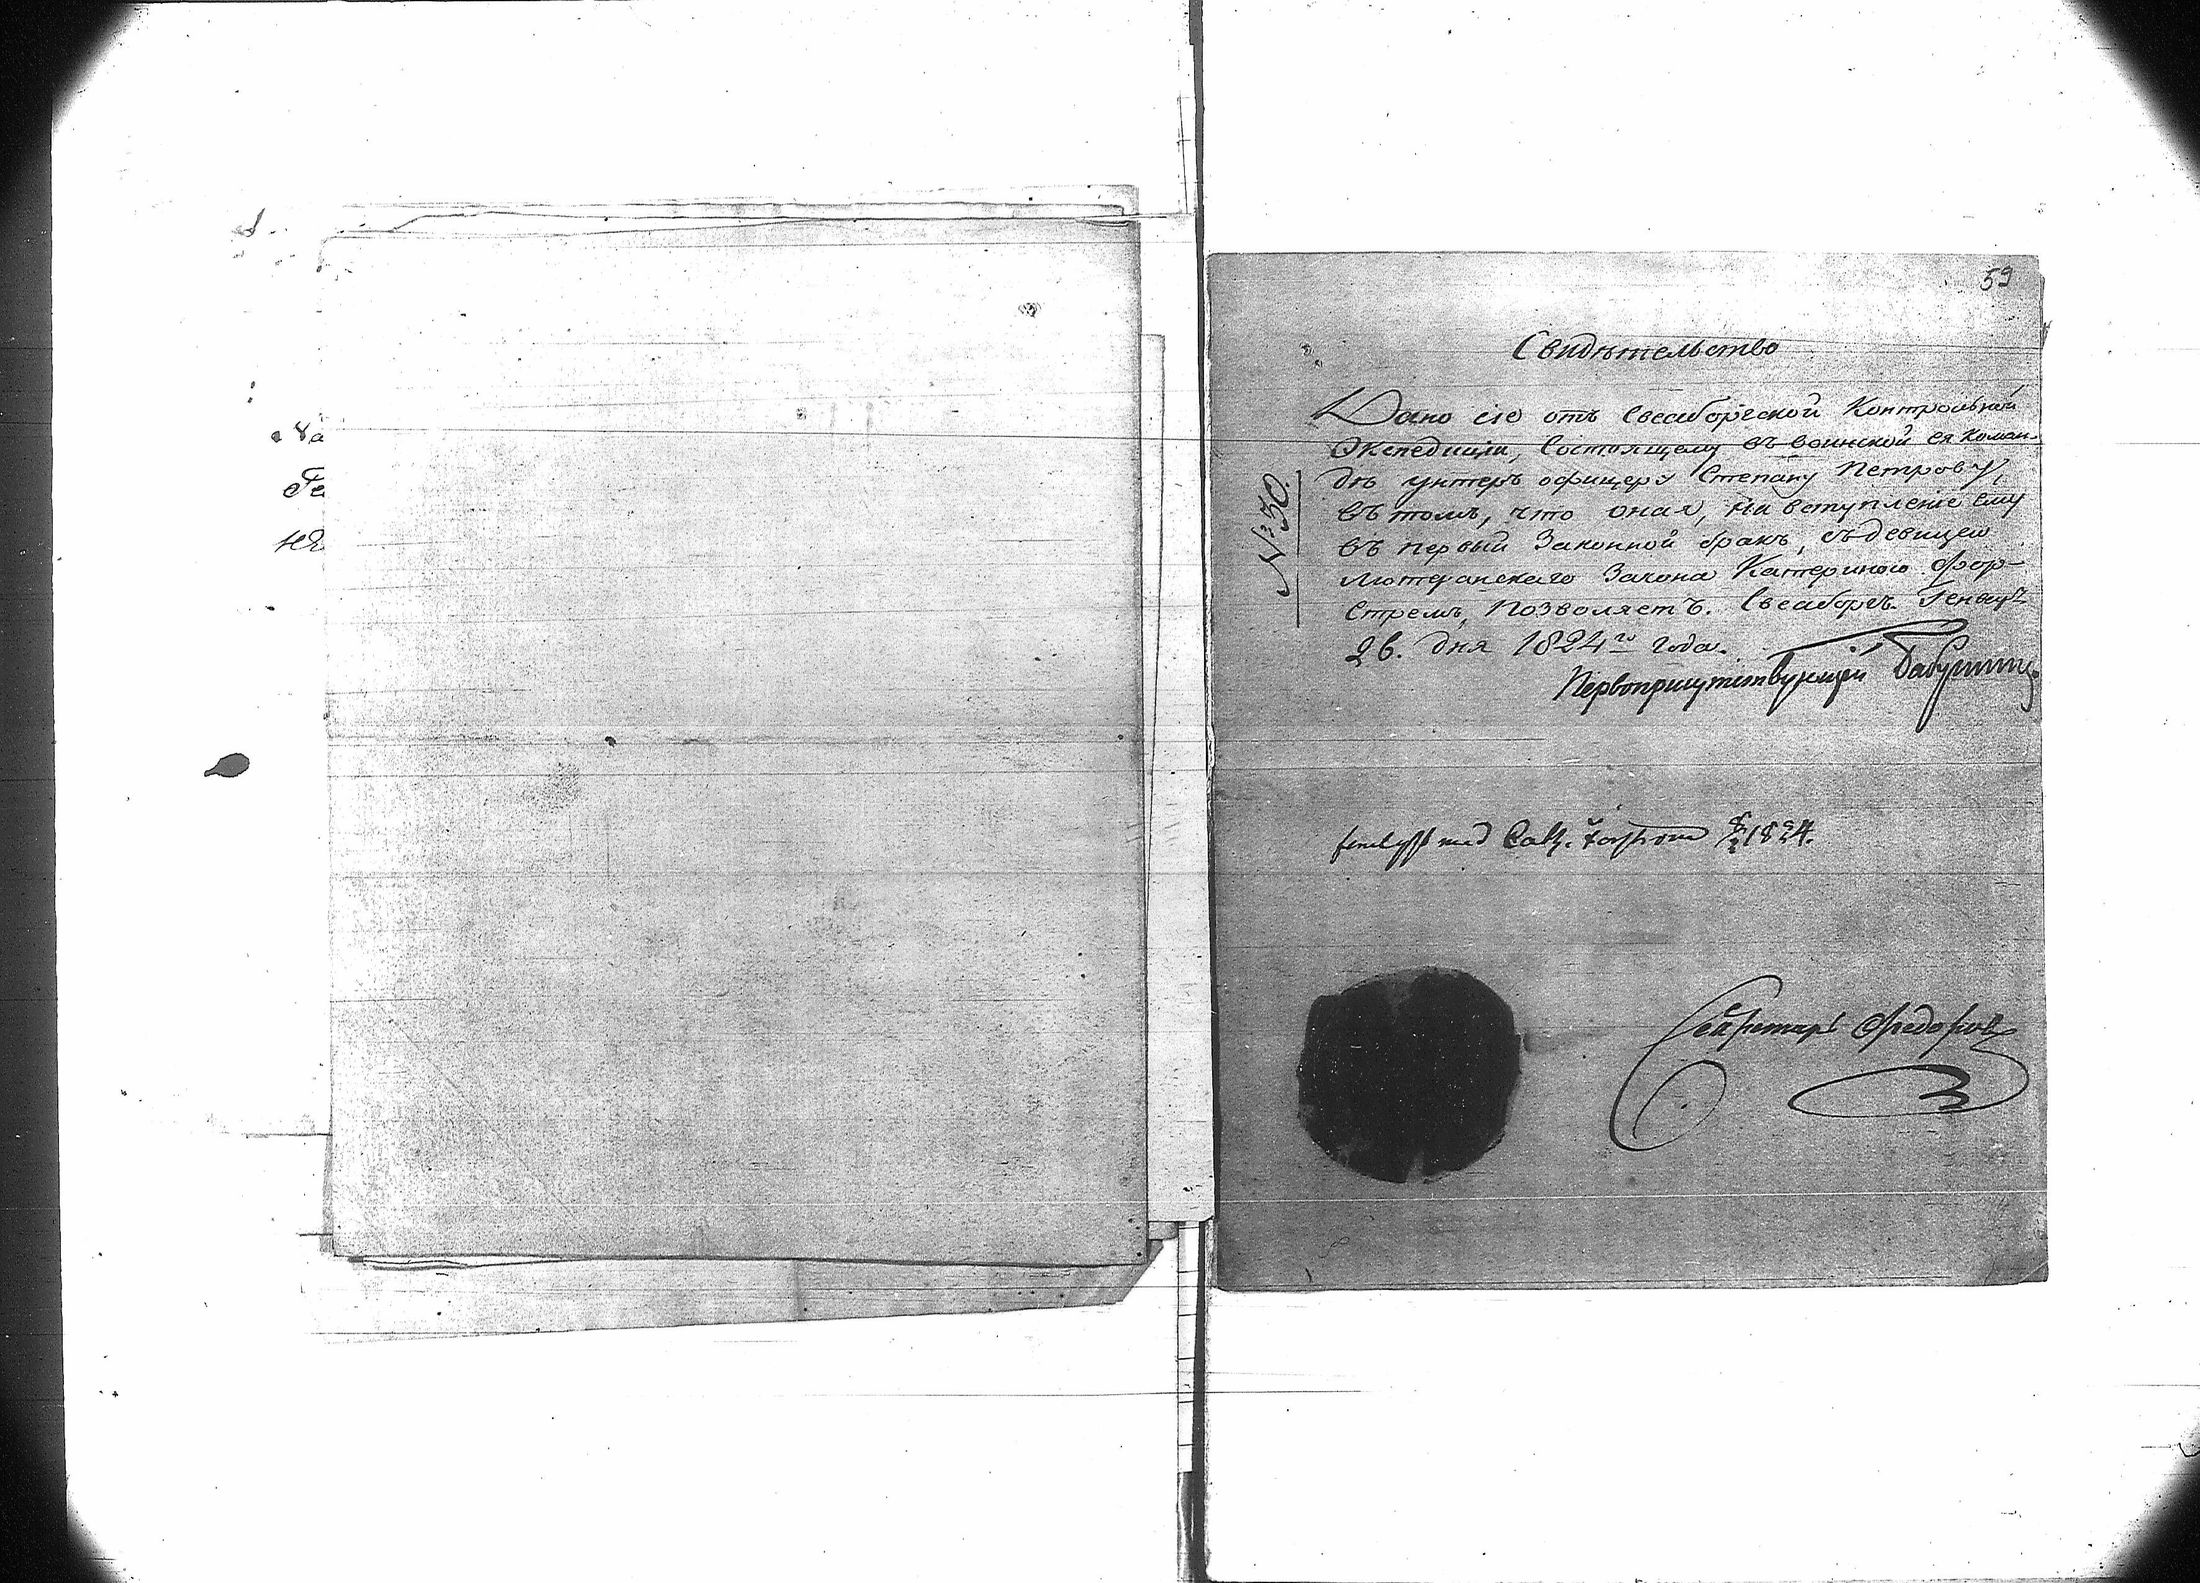 59
Свидѣтельство
№ 30.
Дано сіе отъ Свеаборгской Контрольной
Экспедиціи, Состоящему въ воинской ея коман-
дѣ унтеръ офицеру Степану Петрову,
въ томъ, что оная, на вступленіе ему
въ первый Законной бракъ, съ девицею
Лютеранскаго Закона Катериною Фор-
стремъ, позволяетъ. Свеаборгъ. Генваря
26. дня 1824го года.
Первоприсутствующій
med Cath. 1824.
Секретарь Федоровъ
Na
Ге